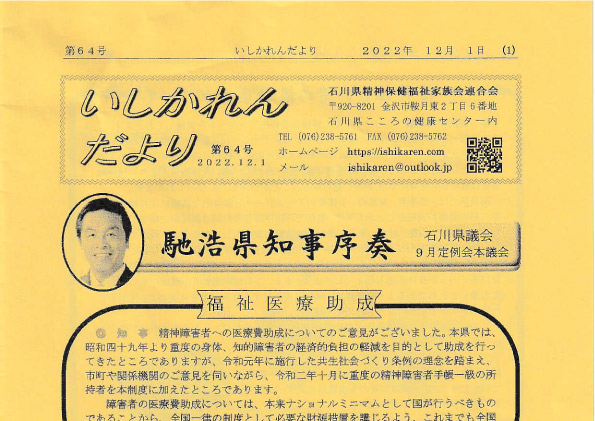 第64号 いしかれんだより 2022年 12月 1日 (1)
いしかれん
だより 第64号
2022.12.1
石川県精神保健福祉家族会連合会
〒920-8201 金沢市鞍月東2丁目6番地
石川県こころの健康センター内
TEL (076)238-5761 FAX (076)238-5762
ホームページ https://ishikaren.com
メール ishikaren@outlook.jp
馳浩県知事序奏
石川県議会
9月定例会本議会
福祉医療助成
◎ 知 事 精神障害者への医療費助成についてのご意見がございました。本県では、
昭和四十九年より重度の身体、知的障害者の経済的負担の軽減を目的として助成を行っ
てきたところでありますが、令和元年に施行した共生社会づくり条例の理念を踏まえ、
市町や関係機関のご意見を伺いながら、令和二年十月に重度の精神障害者手帳一級の所
持者を本制度に加えたところであります。
障害者の医療費助成については、本来ナショナルミニマムとして国が行うべきもの
であることから、全国一律の制度として必要な財源措置を講じるよう、これまでも全国